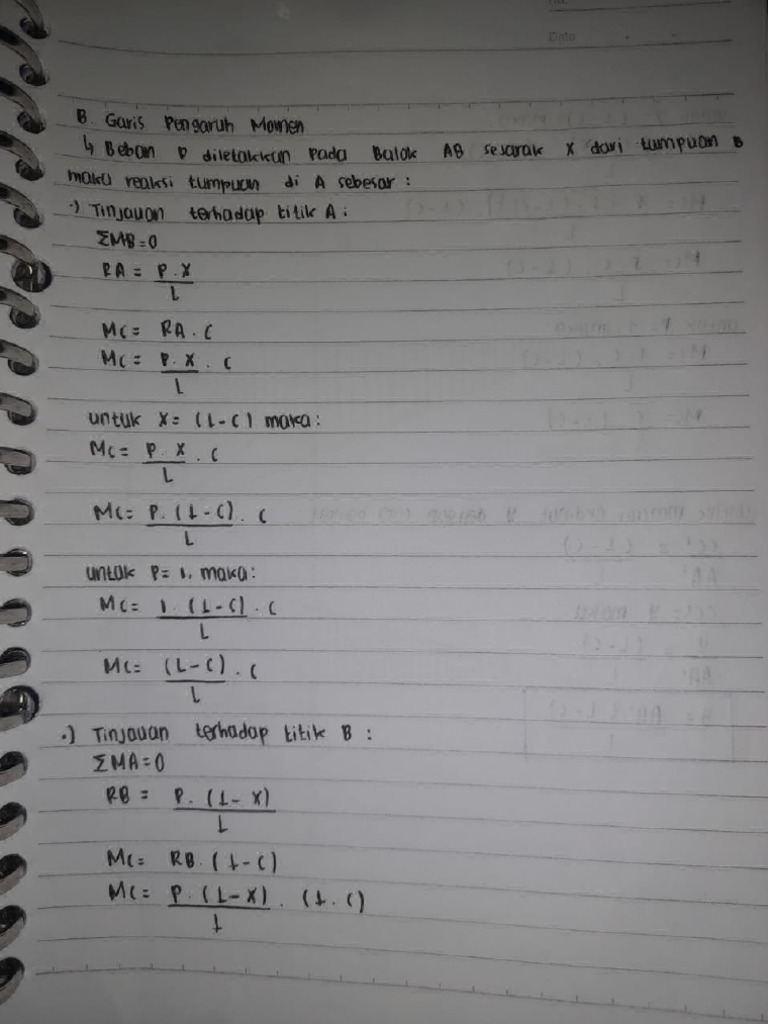 No.
Date
B. Garis Pengaruh Momen
↳ Beban P diletakkan Pada Balok AB sejarak X dari tumpuan B
maka reaksi tumpuan di A sebesar :
·) Tinjauan terhadap titik A :
ΣMB = 0
RA = P . X
L
MC = RA . C
MC = P . X . C
L
untuk X = (L - C) maka :
MC = P . X . C
L
MC = P . (L - C) . C
L
untuk P = 1, maka :
MC = 1 . (L - C) . C
L
MC = (L - C) . C
L
·) Tinjauan terhadap titik B :
ΣMA = 0
RB = P . (L - X)
L
MC = RB . (L - C)
MC = P . (L - X) . (L . C)
L